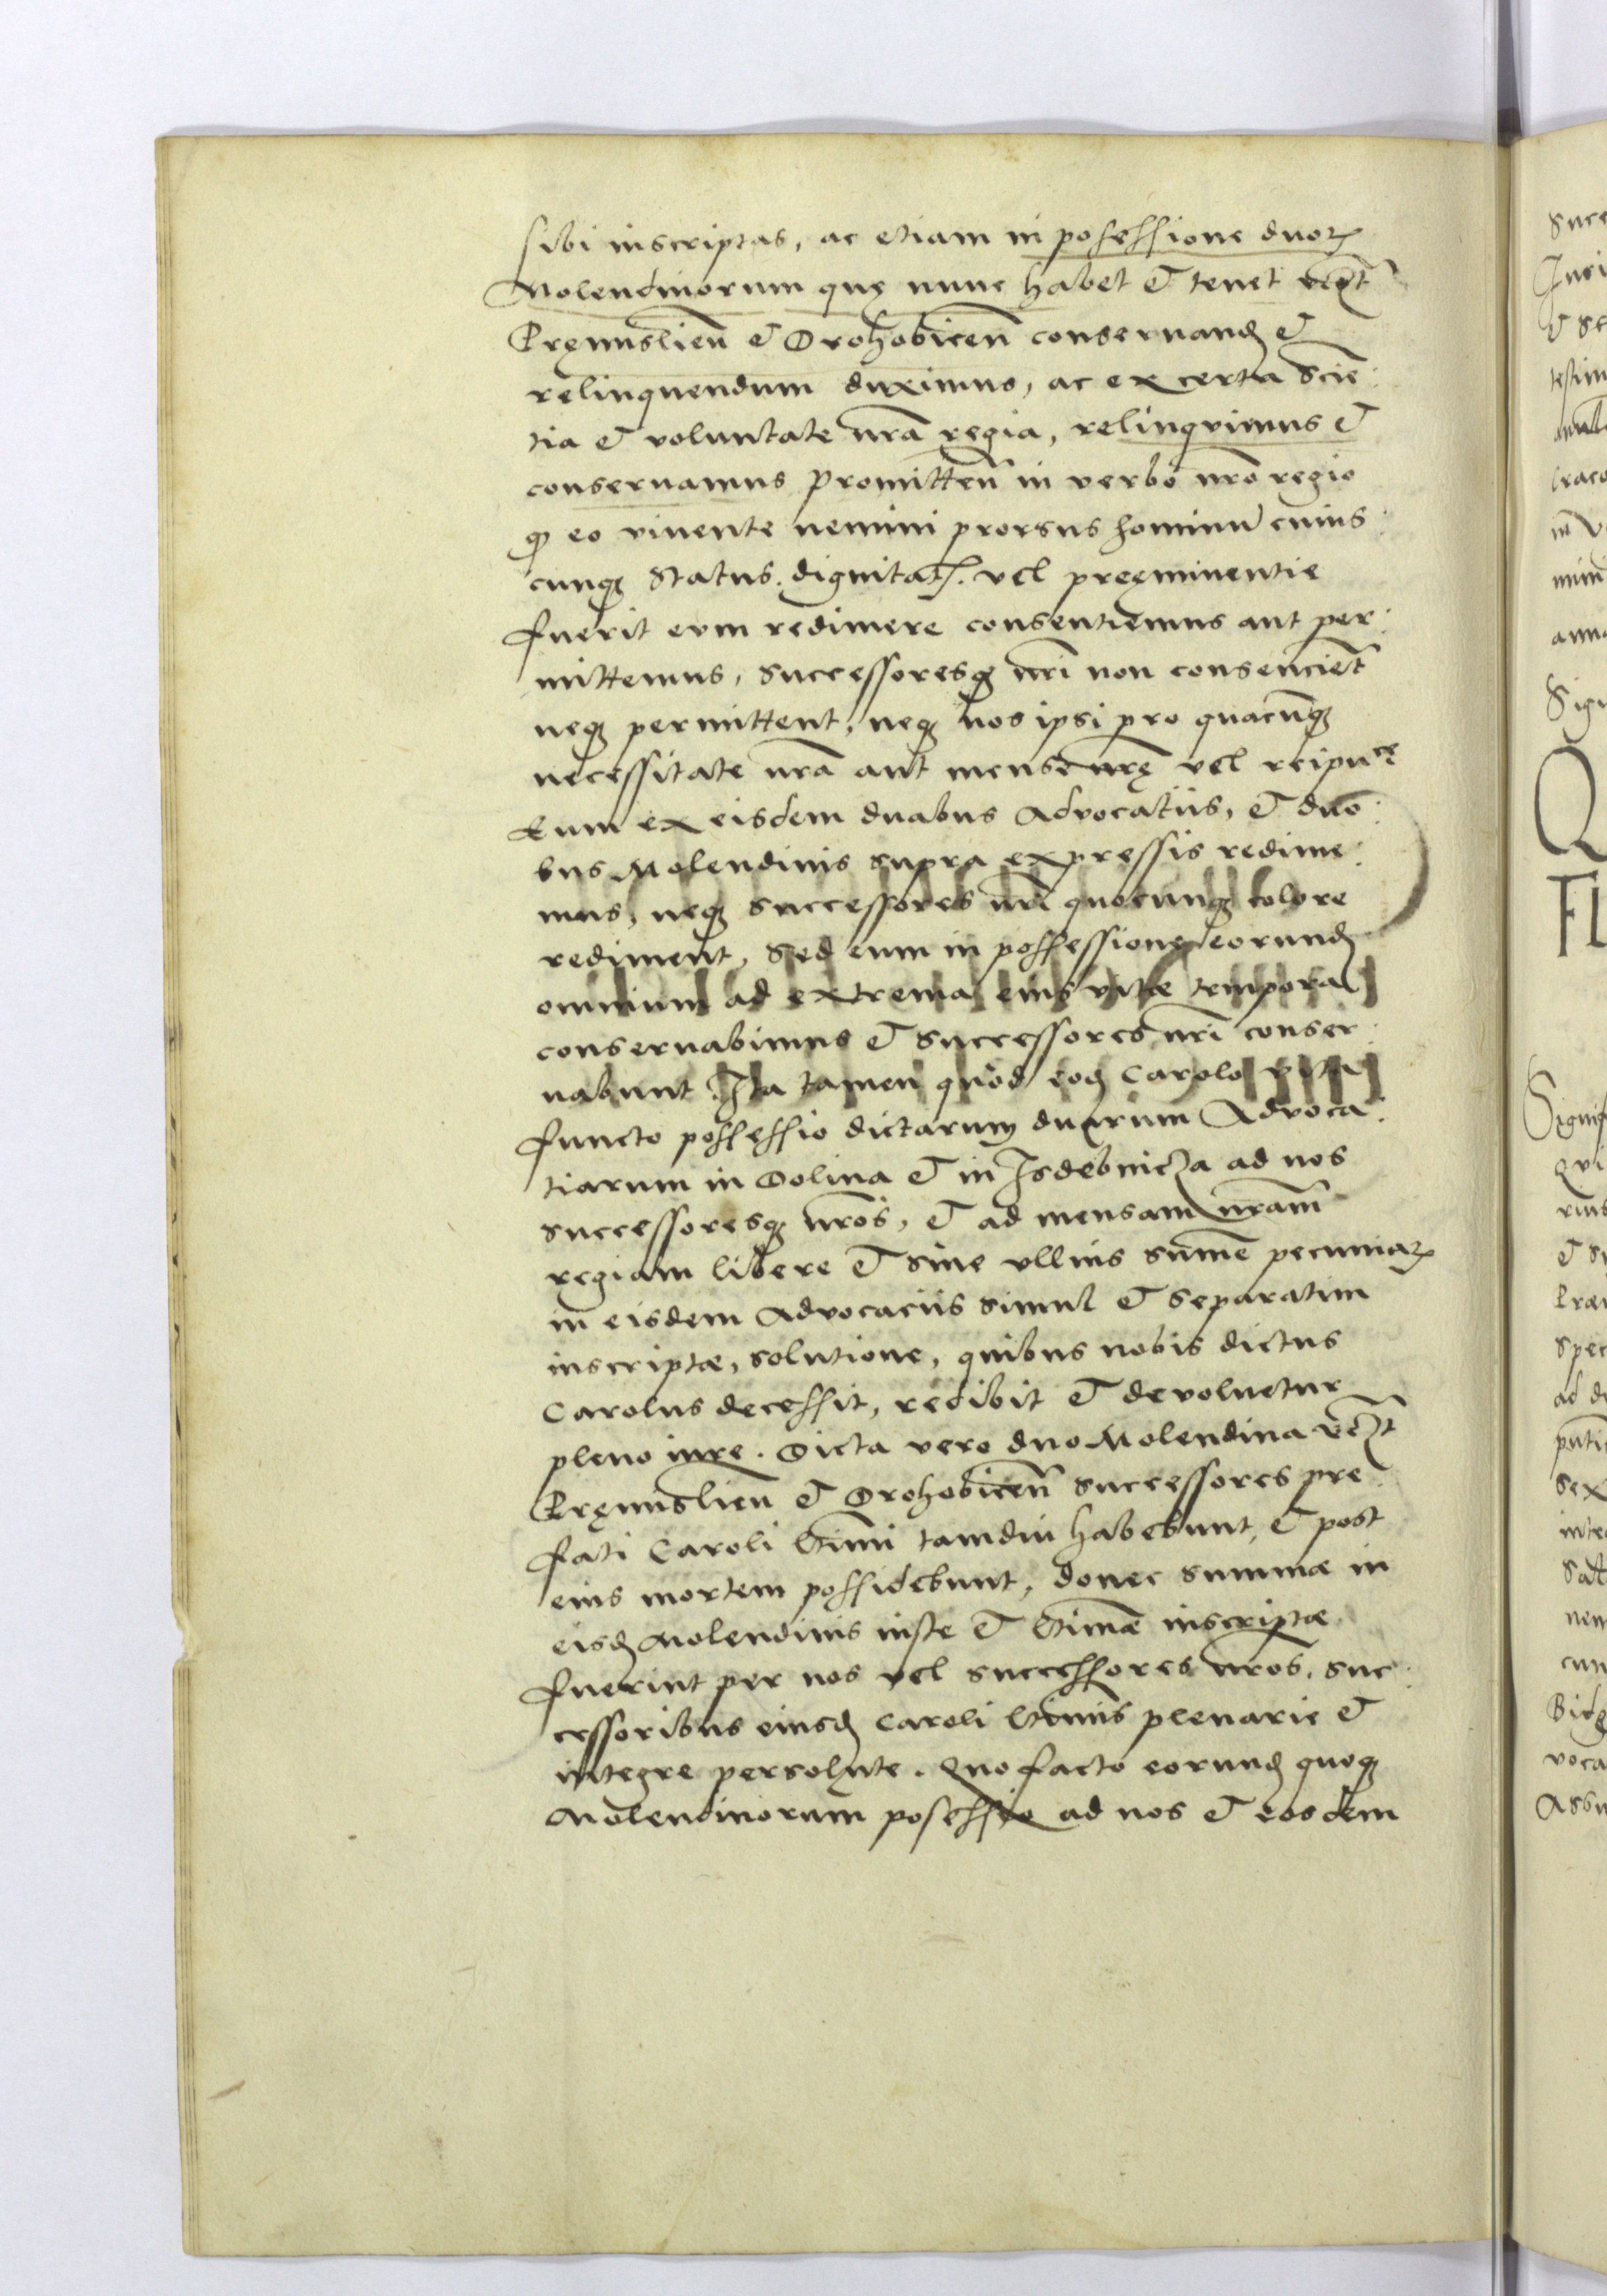 sibi inscriptas, ac etiam in possessione duorꝝ
Molendinorum quę nunc habet et tenet
Pręmislien̄ et Drohobicen̄ conseruand et
relinquendum duximus, ac ex certa scie:
tia et voluntate nrā regia, relinquimus et
conseruamus promitten̄ in verbo nrō regio
qꝫ eo viuente nemini prorsus hominū cuius:
cunqꝫ status. dignitatꝭ. vel pręminentie
fuerit eum redimere consentiemus aut per:
mittemus, successoresqꝫ nrī non consencient̄
neqꝫ permittent, neqꝫ nos ipsi pro quacūqꝫ
necessitate nrā aut mense nrę vel reipuce
Eum ex eisdem duabus Aduocatiis, et duo:
bus Molendinis supra expressis redime:
mus, neqꝫ successores nrī quocunqꝫ colore
rediment, sed eum in possessione eorund
omnium ad extrema eius vitæ tempora
conseruabimus et successores nrī conser:
uabunt Ita tamen quod eod Carolo vita
functo possessio dictarum duarum Aduoca:
tiarum in Dolina et in Isdebnicza ad nos
successoresqꝫ nrōs, et ad mensam nrām
regiam libere et sine vllius summē pecuniarꝝ
in eisdem Aduocaciis simul et separatim
inscriptæ, solutione, quibus nobis dictus
Carolus decessit, redibit et deuoluetur
pleno iure. Dicta vero duo Molendina
Pręmislien̄ et Drohobicen̄ successores pre:
fati Caroli ltimi tamdiu habebunt, et post
eius mortem possidebunt, donec summæ in
eisd Molendinis iuste et ltimæ inscriptæ
fuerint per nos vel successores nrōs, suc:
cessoribus eiusd Caroli ltimis plenarie et
integre persolute. Quo facto eorund quoqꝫ
Molendinorum possessio ad nos et eosdem